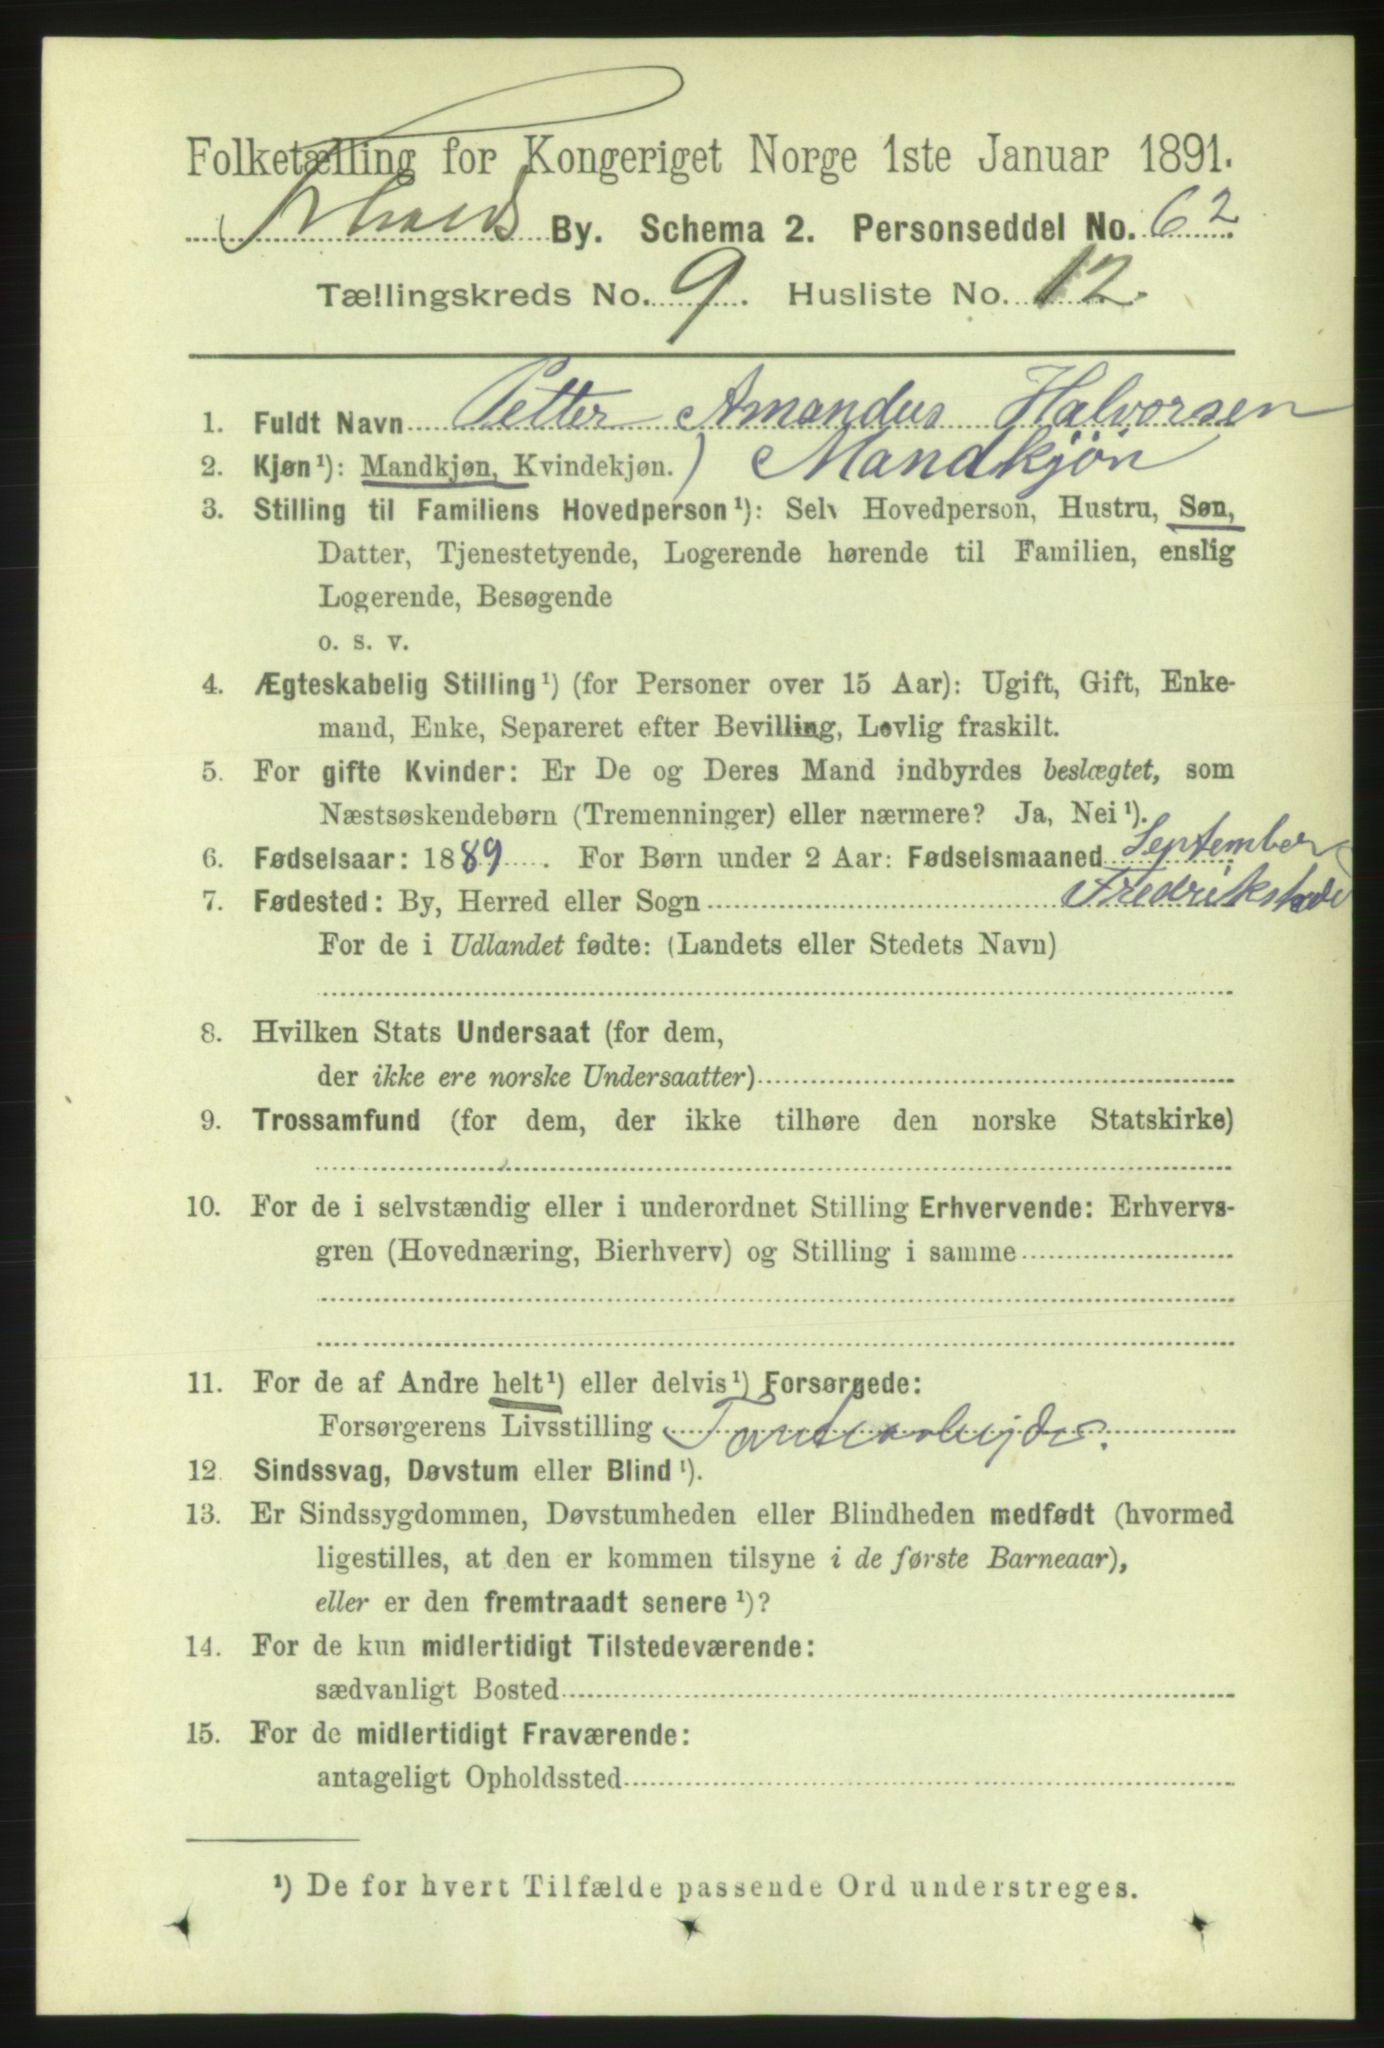 Folketælling for Kongeriget Norge 1ste Januar 1891.
By. Schema 2. Personseddel No. 62
Tællingskreds No. 9. Husliste No. 12.
1. Fuldt Navn Petter Amandus Halvorsen
2. Kjøn¹): Mandkjøn, Kvindekjøn.) Mandkjøn
3. Stilling til Familiens Hovedperson¹): Selv Hovedperson, Hustru, Søn,
Datter, Tjenestetyende, Logerende hørende til Familien, enslig
Logerende, Besøgende
o. s. v.
4. Ægteskabelig Stilling¹) (for Personer over 15 Aar): Ugift, Gift, Enke-
mand, Enke, Separeret efter Bevilling, Lovlig fraskilt.
5. For gifte Kvinder: Er De og Deres Mand indbyrdes beslægtet, som
Næstsøskendebørn (Tremenninger) eller nærmere? Ja, Nei¹).
6. Fødselsaar: 1889. For Børn under 2 Aar: Fødselsmaaned September
7. Fødested: By, Herred eller Sogn Fredrikstad
For de i Udlandet fødte: (Landets eller Stedets Navn)
8. Hvilken Stats Undersaat (for dem,
der ikke ere norske Undersaatter)
9. Trossamfund (for dem, der ikke tilhøre den norske Statskirke)
10. For de i selvstændig eller i underordnet Stilling Erhvervende: Erhvervs-
gren (Hovednæring, Bierhverv) og Stilling i samme
11. For de af Andre helt¹) eller delvis¹) Forsørgede:
Forsørgerens Livsstilling
12. Sindssvag, Døvstum eller Blind¹).
13. Er Sindssygdommen, Døvstumheden eller Blindheden medfødt (hvormed
ligestilles, at den er kommen tilsyne i de første Barneaar),
eller er den fremtraadt senere¹)?
14. For de kun midlertidigt Tilstedeværende:
sædvanligt Bosted
15. For de midlertidigt Fraværende:
antageligt Opholdssted
¹) De for hvert Tilfælde passende Ord understreges.